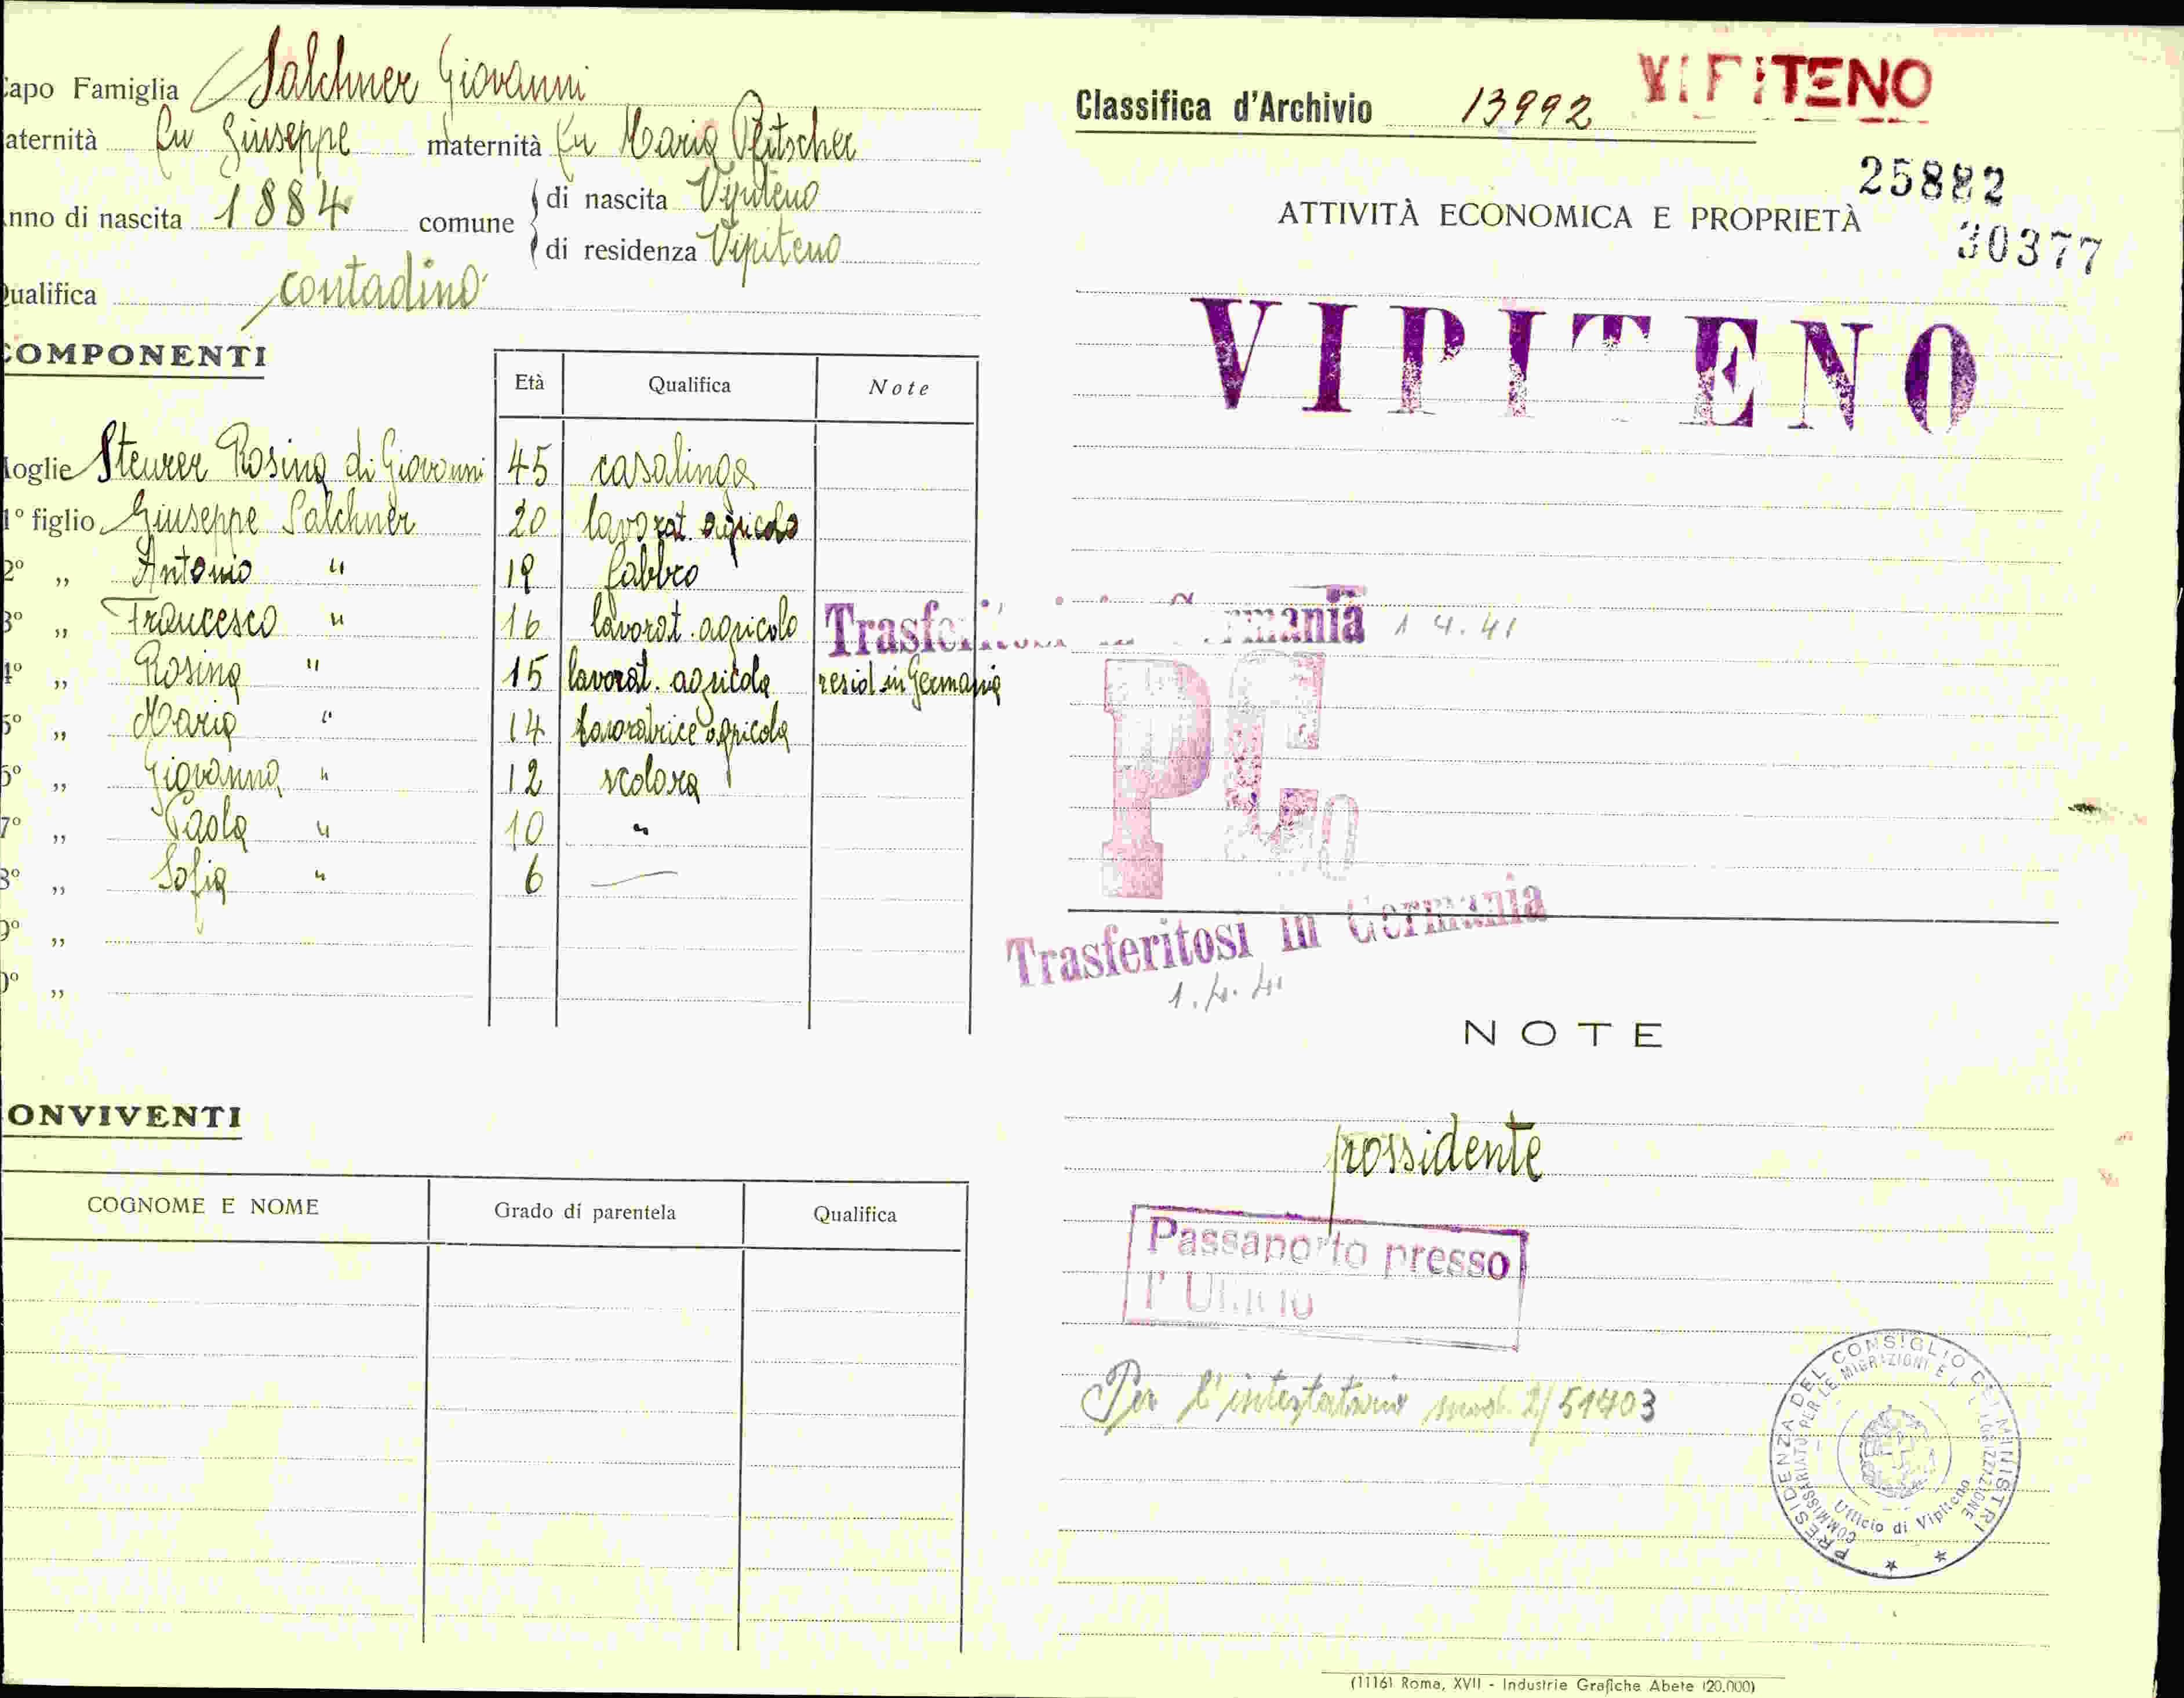 apo Famiglia Salchner Giovanni
aternità fu Giuseppe maternità fu Maria Pfitscher
nno di nascita 1884 comune di nascita Vipiteno
di residenza Vipiteno
Qualifica contadino
COMPONENTI
Età Qualifica Note
oglie Steurer Rosina di Giovanni 45 casalinga
1° figlio Giuseppe Salchner 20 lavorat. agricolo
2° „ Antonio " fabbro
3° „ Francesco " 16 lavorat. agricolo
4° „ Rosina " 15 lavorat. agricola resid. in Germania
5° „ Maria " 14 lavoratrice agricola
6° „ Giovanna " 12 scolara
7° „ Paola " 10 "
8° „ Sofia " 6 —
9° „
0° „
ONVIVENTI
COGNOME E NOME Grado di parentela Qualifica
Classifica d'Archivio 13992 VIPITENO
25882
ATTIVITÀ ECONOMICA E PROPRIETÀ
30377
VIPITENO
Trasferitosi in Germania 1 4.41
PG
Trasferitosi in Germania
1.4.41
NOTE
possidente
Passaporto presso
l'Ufficio
Per l'intestatario mod. 2/51703
PRESIDENZA DEL CONSIGLIO DEI MINISTRI
COMMISSARIATO PER LE MIGRAZIONI E L
Ufficio di Vipiteno
(1116) Roma, XVII - Industrie Grafiche Abete (20.000)